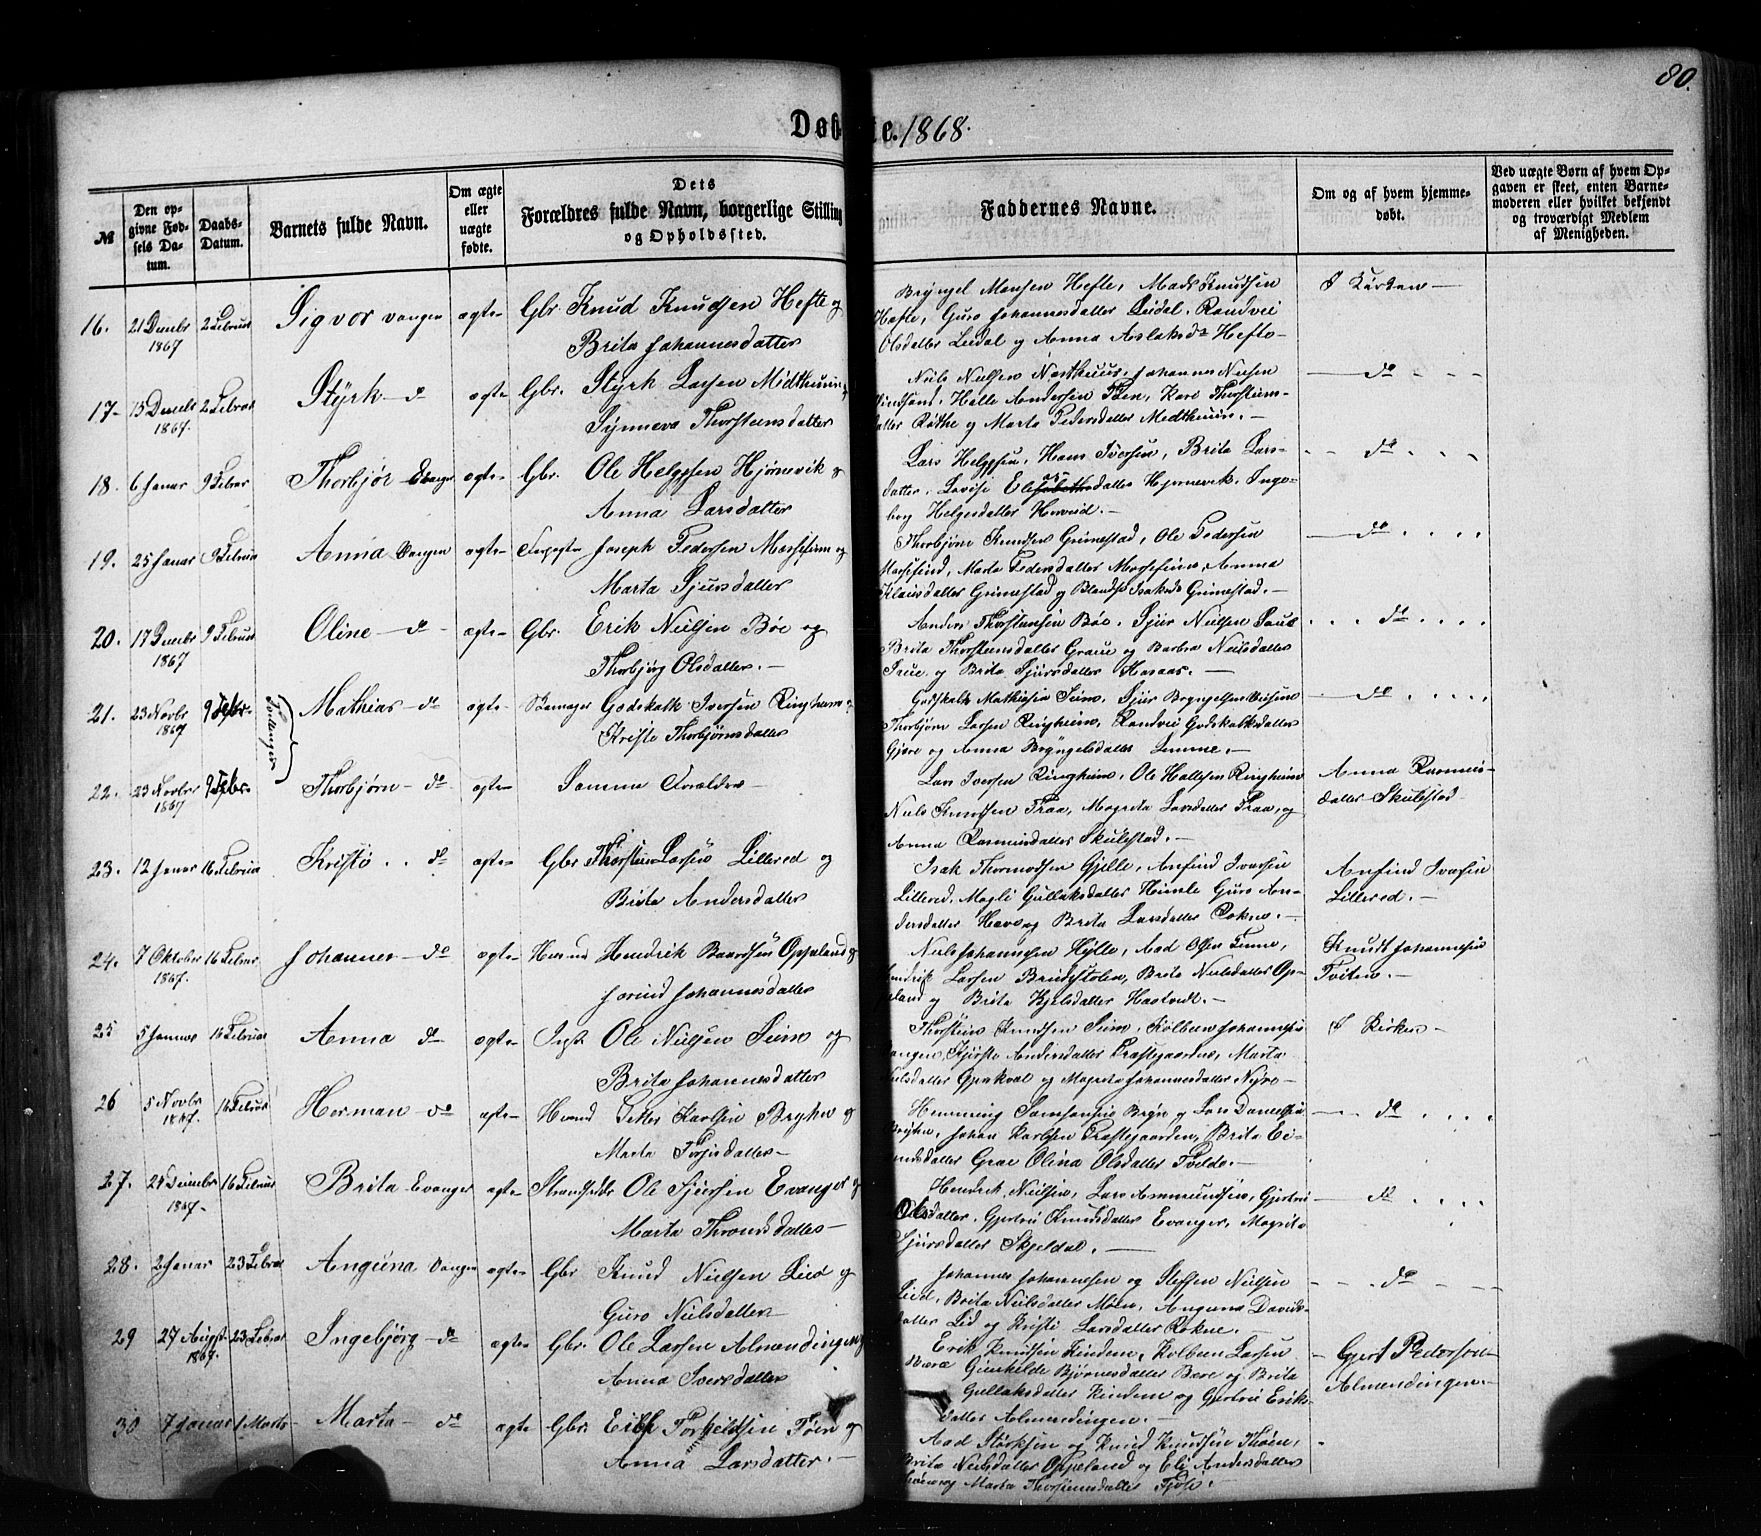 80.
Døbte. 1868.
№
Den opgivne Fødsels Datum.
Daabs-Datum.
Barnets fulde Navn.
Om ægte eller uægte fødte.
Dets Forældres fulde Navn, borgerlige Stilling og Opholdssted.
Faddernes Navne.
Om og af hvem hjemmedøbt.
Ved uægte Børn af hvem Opgaven er skeet, enten Barnemoderen eller hvilket bekjendt og troværdigt Medlem af Menigheden.
16. 21 Decmbr 1867 2 Februar Sigvor Vangen ægte Gbr. Knud Knudsen Hefte og
Brita Johannesdatter
Bryngel Monsen Hefte, Mads Knudsen
Hefte, Guro Johannesdatter Leidal, Randvei
Olsdatter Leidal og Anna Aslaksdr Hefte
I Kirken
17 15 Decmbr 1867. 2 Febrar Styrk do ægte Gbr. Styrk Larsen Midthuun
Synneva Thorsteinsdatter
Niels Nielsen Nesthuus, Johannes Nielsen
Halle Andersen Tøen, Kare Thorsteins-
datter Røthe og Marta Pedersdatter Medthuun.
do
18. 6 Januar 9 Febrar Thorbjør Evanger ægte Gbr. Ole Helgesen Hjørnevik &
Anna Larsdatter
Lars Helgesen, Hans Iversen, Brita Lars-
datter, Lovise datter Hjørnevik, Inge-
borg Helgesdatter
do
19. 25 Januar 9 Februar Anna Vangen ægte Joseph Pedersen Mossefinn og
Marta Sjursdatter
Thorbjørn Knudsen Grimestad, Ole Pedersen
Mossefind, Marta Pedersdatter Mossefinn, Anna
Klausdatter Grimestad og Isaksdr Grimestad.
do
20. 17 Decmbr 1867 9 Februar Oline do ægte Gbr. Erik Nielsen Bøe og
Thorbjørg Olsdatter.
Anders Thorsteinsen Bøe, Sjur Nielsen
Brita Thorsteinsdatter Graue og Barbra Nielsdatter
og Brita Sjursdatter Haraas.
do
21. 23 Novbr 1867 9 Febr. Mathias do ægte Godskalk Iversen Ringheim &
Kristi Thorbjørnsdatter
Tvillinger
Godskalk Mathiesen Seim, Sjur Bryngelsen
Thorbjørn Larsen Ringheim, Randvei Godskalksdatter
Gjøre og Anna Bryngelsdatter
do
22. 23 Novbr 1867 9 Febr. Thorbjørn do ægte Samme Forældre
Lars Iversen Ringheim, Ole Hallesen Ringheim
Niels Knudsen Traa, Magreta Larsdatter Traa, og
Anna Rasmusdatter Skulestad.
Anna Rasmus-
datter Skulestad
23. 12 Januar 16 Februar Kristi do ægte Gbr Thorstein Larsen Lillered og
Brita Andersdatter
Isak Thormodsen Gjelle, Anfind Ivarsen
Lillered, Magli Gullaksdatter Himle Guro An-
dersdatter og Brita Larsdatter Rokne.
Anfind Ivarsen
Lillered.
24. 7 Oktober 1867. 16 Februar Johannes do ægte Husmd Hendrik Baardsen Oppeland &
Jorind Johannesdatter
Niels Johannesen Hylle, Aad Olsen Finne,
Larsen Brudestolen, Brita Nielsdatter Op-
peland og Brita Kjelsdatter Hastvedt.
Knudt Johannesen
Tviten.
25 5 Januar 16 Februar Anna do ægte Inst Ole Nielsen Seim og
Brita Johannesdatter
Thorstein Knudsen Seim, Kolbein Johannesen
Vangen, Kjersti Andersdatter Præstegaarden, Marta
Nielsdatter og Magreta Johannesdatter Nyre
I Kirken
26 5 Novbr 1867. 16 Februar Herman do ægte Husmd Peter Karlsen Bryhn og
Marta Torjisdatter
Hemming Samsonsen Bryn og Lars Danielsen
Bryhn, Johan Karlsen Præstegaarden, Brita Ei-
nersdatter Grae Olina Olsdatter Tvilde.
do
27. 24 Decmbr 1867 16 Februar Brita Evanger ægte Strandsidder Ole Sjursen Evanger og
Marta Thronsdatter
Hendrik Nielsen, Lars Ammundsen, Gjertrui
Olsdatter, Gjertrui Knudsdatter Evanger, Magreta
Sjursdatter Skjeldal.
do
28. 2 Januar 23 Febrar Anguna Vangen ægte Gbr Knud Nielsen Lied og
Guro Nielsdatter
Johannes Johannesen og Steffen Nielsen
Lied, Brita Nielsdatter Møen, Anguna Davids-
datter Lid og Kristi Larsdatter Rokne.
do
29 27 August 1867. 23 Febrar Ingebjørg do ægte Gbr. Ole Larsen Almendingen og
Anna Iversdatter
Erik Knudsen Kindem, Kolbein Larsen
Børe Gunhilde Bjørnesdatter Børe og Brita
Gullaksdatter Kindem og Gjertrui Eriks-
datter Almendingen.
Gjert Pederson
Almendingen.
30 7 Januar 1 Marts Marta do ægte Gbr. Erik Torkeldsen Tøen og
Anna Larsdatter.
Aad Størksen og Knud Knudsen Thøen,
Brita Nielsdatter Oppeland og Eli Andersdatter
og Marta Thorsteinsdatter